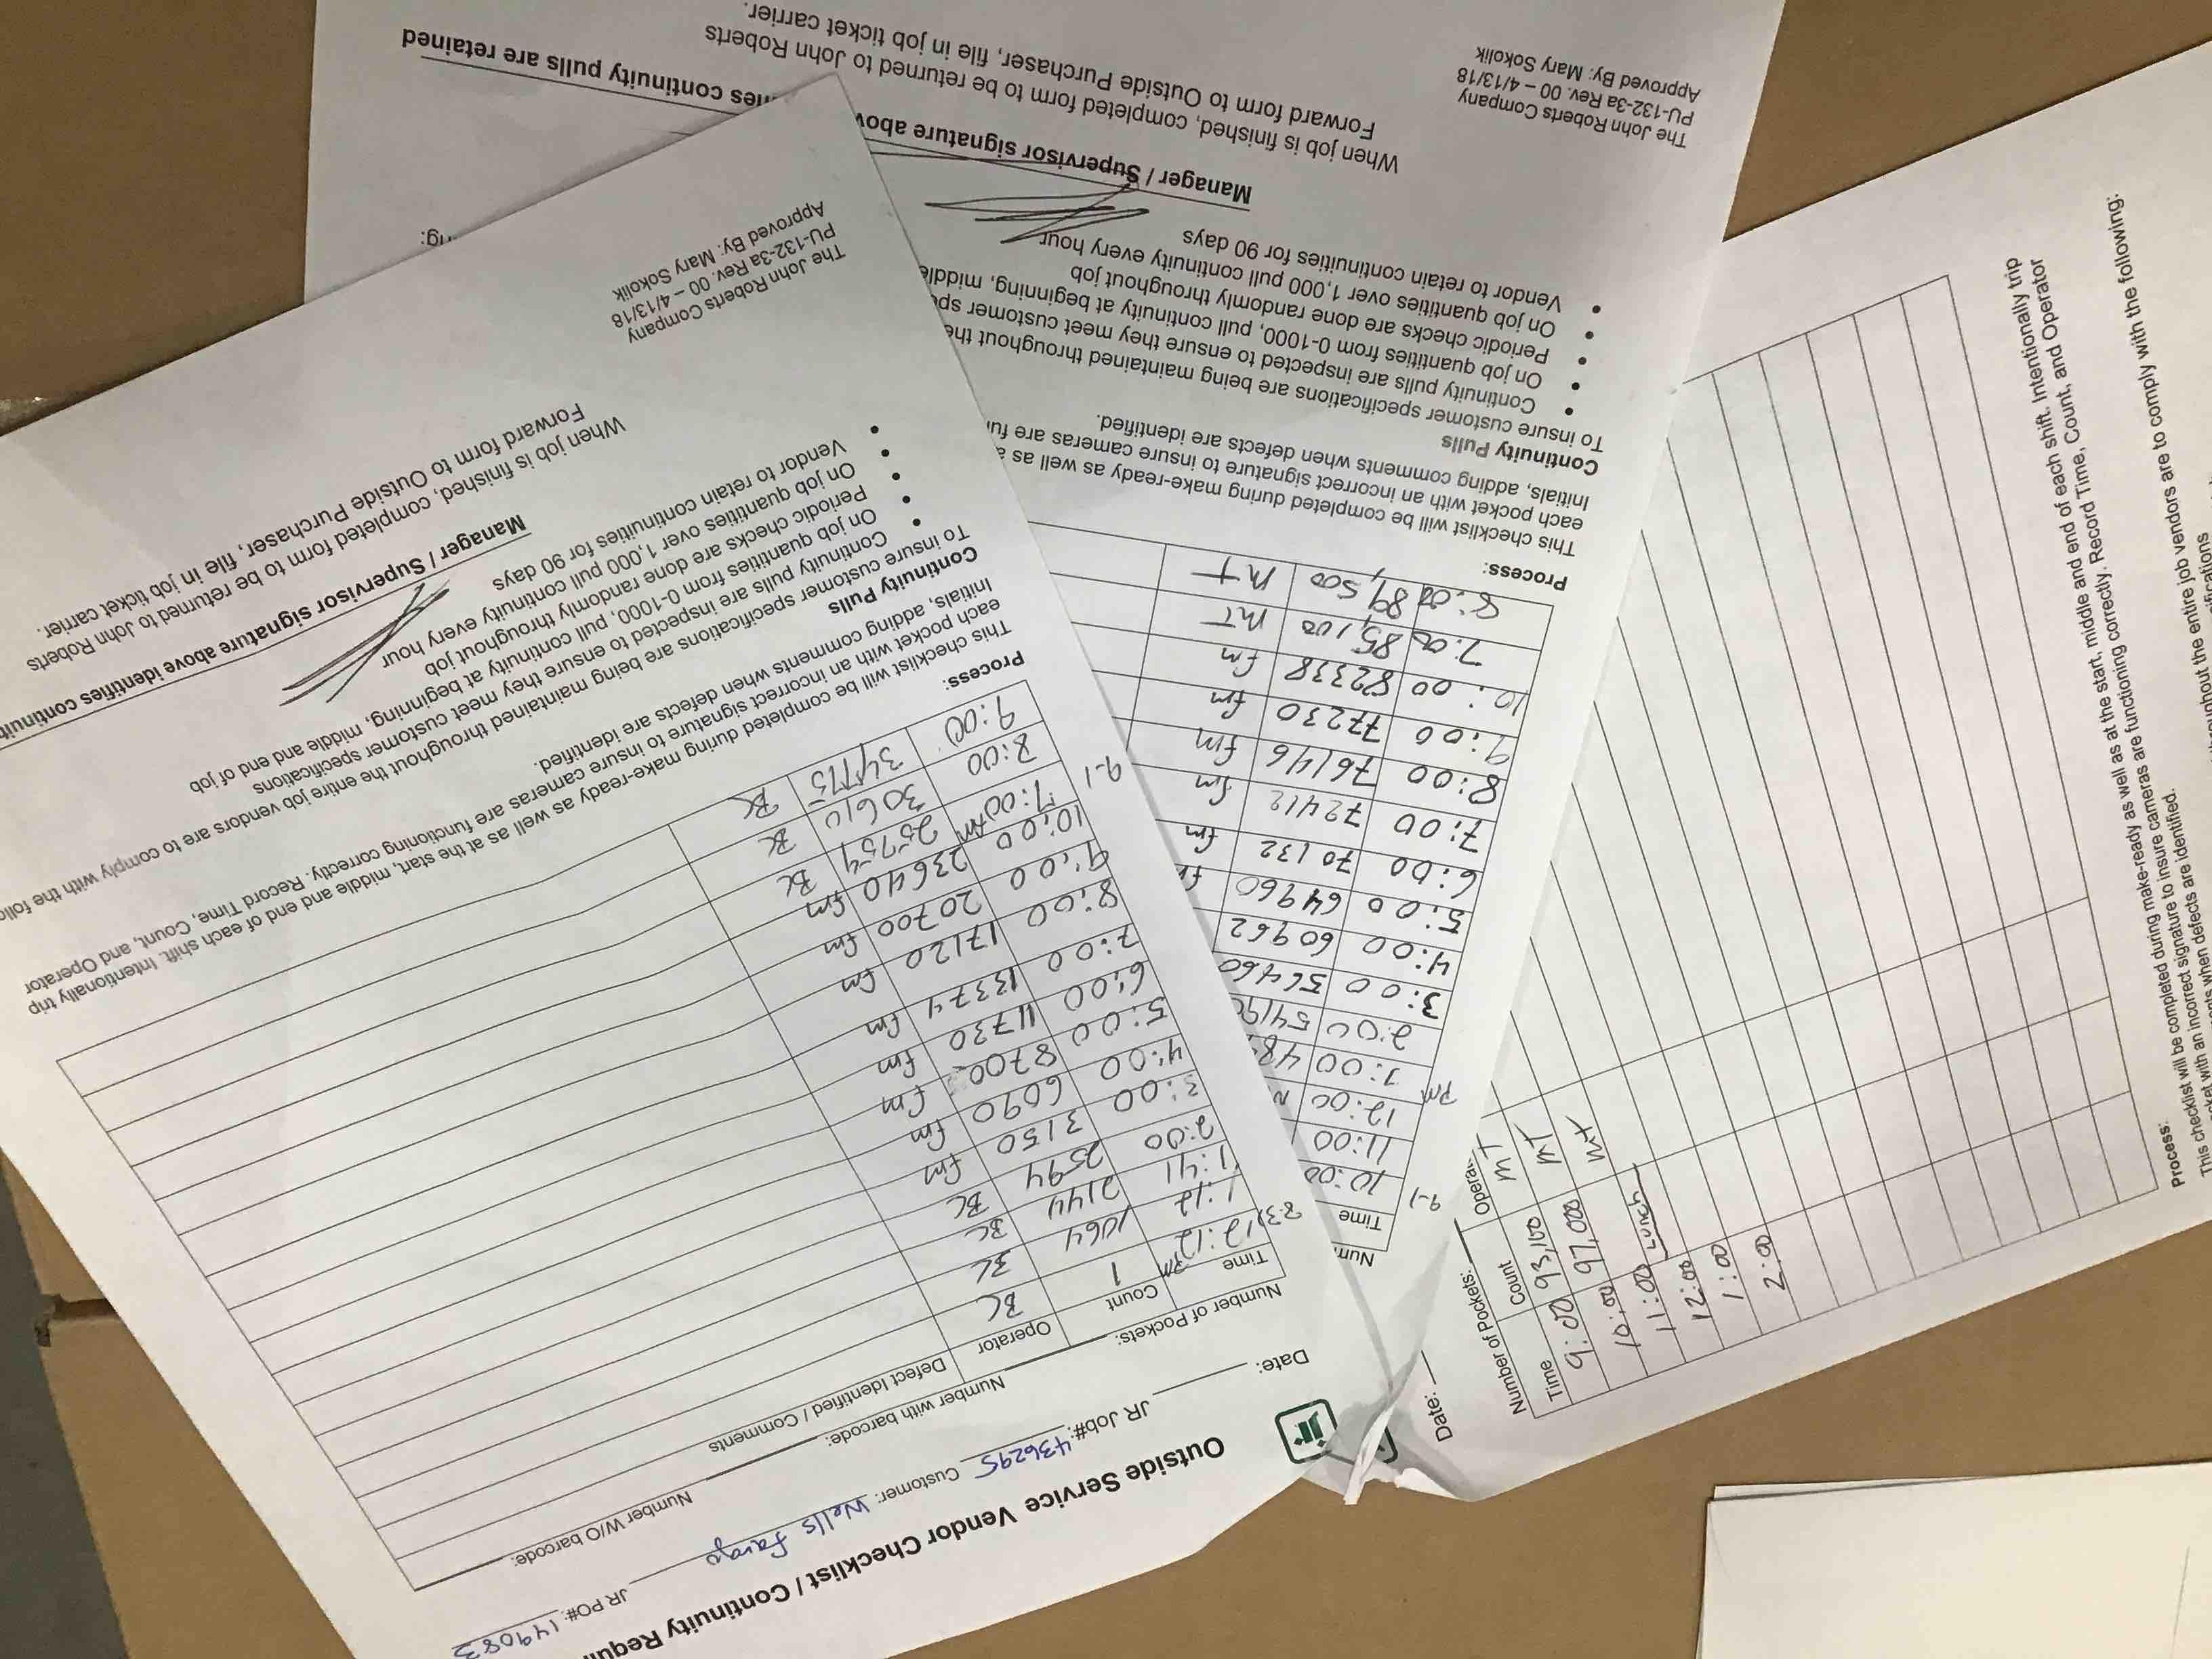 Outside Service Vendor Checklist / Continuity Requi
jr.
Date: JR Job#: 436295 Customer: Wells fargo JR PO#: 149083
Number of Pockets: Number with barcode: Number W/O barcode:
Time Count Operator Defect Identified / Comments
8-31 12:12 PM 1 BC
1:12 1064 BC
1:41 2144 BC
2:00 2594 BC
3:00 3150 fm
4:00 6090 fm
5:00 8700 fm
6:00 11730 fm
7:00 13374 fm
8:00 17120 fm
9:00 20700 fm
10:00 23640 fm
9-1 7:00 AM BC
8:00 30610 BC
9:00 34775 BC
Process:
This checklist will be completed during make-ready as well as at the start, middle and end of each shift. Intentionally trip
each pocket with an incorrect signature to insure cameras are functioning correctly. Record Time, Count, and Operator
Initials, adding comments when defects are identified.
Continuity Pulls
To insure customer specifications are being maintained throughout the entire job vendors are to comply with the follo
• Continuity pulls are inspected to ensure they meet customer specifications
• On job quantities from 0-1000, pull continuity at beginning, middle and end of job
• Periodic checks are done randomly throughout job
• On job quantities over 1,000 pull continuity every hour
• Vendor to retain continuities for 90 days
Manager / Supervisor signature above identifies continuit
When job is finished, completed form to be returned to John Roberts
Forward form to Outside Purchaser, file in job ticket carrier.
The John Roberts Company
PU-132-3a Rev. 00 – 4/13/18
Approved By: Mary Sokolik
Num
Time
9-1 10:00
11:00
12:00 N
PM 1:00 48
2:00 5419
3:00 56460
4:00 60962
5:00 64960 f
6:00 70132 fm
7:00 72412 fm
8:00 76146 fm
9:00 77230 fm
10:00 82338 fm
7:00 85,100 MT
8:00 89,500 MT
Process:
This checklist will be completed during make-ready as well as a
each pocket with an incorrect signature to insure cameras are fu
Initials, adding comments when defects are identified.
Continuity Pulls
To insure customer specifications are being maintained throughout the
• Continuity pulls are inspected to ensure they meet customer sp
• On job quantities from 0-1000, pull continuity at beginning, middle
• Periodic checks are done randomly throughout job
• On job quantities over 1,000 pull continuity every hour
• Vendor to retain continuities for 90 days
Manager / Supervisor signature above
ies continuity pulls are retained
When job is finished, completed form to be returned to John Roberts
Forward form to Outside Purchaser, file in job ticket carrier.
The John Roberts Company
PU-132-3a Rev. 00 – 4/13/18
Approved By: Mary Sokolik
ng:
Date:
Number of Pockets:
Time Count Opera
9:00 93,100 MT
10:00 97,000 MT
11:00 LUNCH MT
12:00
1:00
2:00
Process:
This checklist will be completed during make-ready as well as at the start, middle and end of each shift. Intentionally trip
pocket with an incorrect signature to insure cameras are functioning correctly. Record Time, Count, and Operator
ents when defects are identified.
throughout the entire job vendors are to comply with the following:
ifications